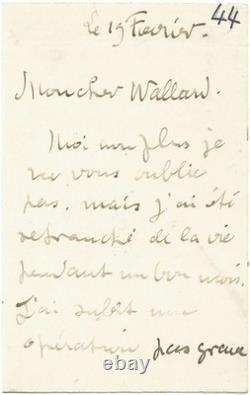 44
Le 19 Février.
Mon cher Wallard.
Moi non plus je
ne vous oublie
pas. mais j'ai été
retranché de la vie
pendant un bon mois.
J'ai subit une
opération pas grave
ebay